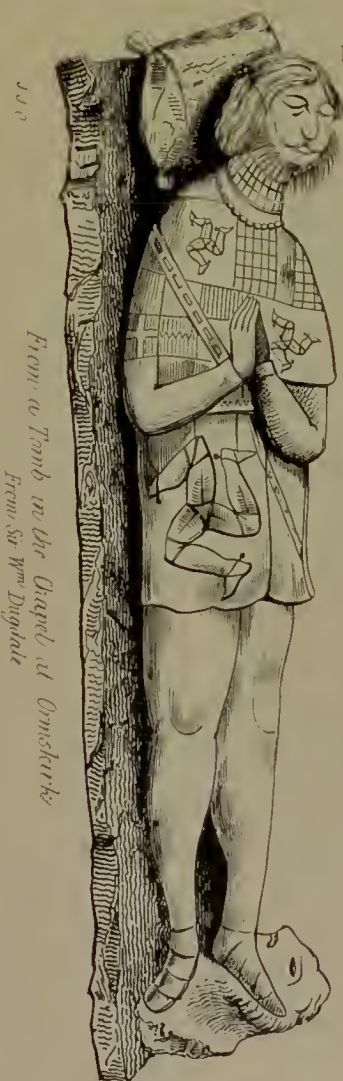 From a Tomb in the Chapel at Ormskirk
From Sir Wm Dugdale